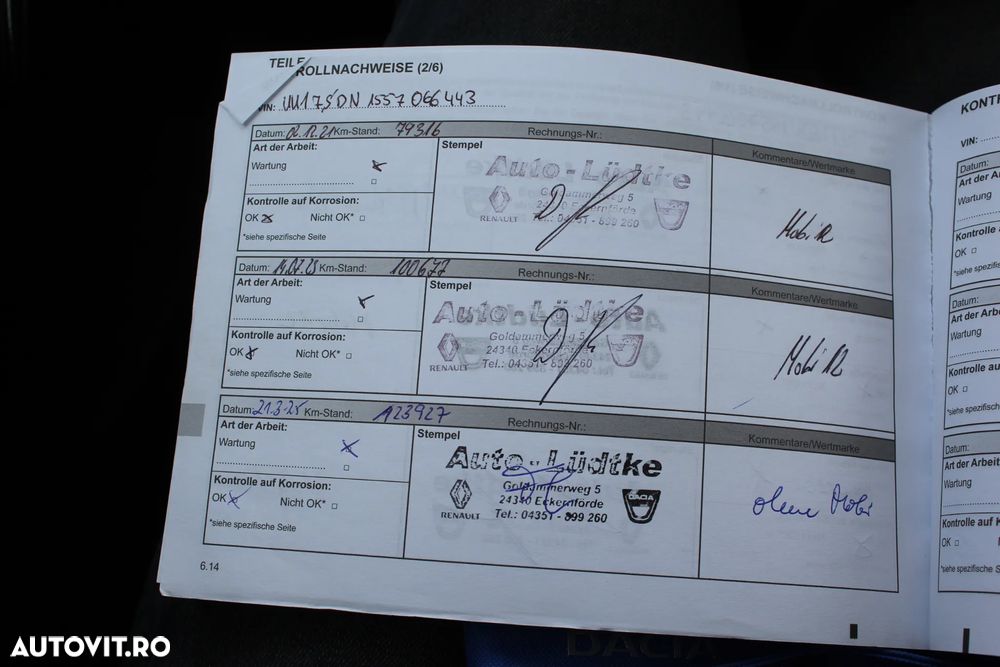 TEILE
ROLLNACHWEISE (2/6)
VIN: UU17SDN 1557 066 443
Datum: 02.12.21 Km-Stand: 79316 Rechnungs-Nr.:
Art der Arbeit:
Wartung
Kontrolle auf Korrosion:
OK Nicht OK*
*siehe spezifische Seite
Stempel
Auto-Lüdtke
Goldammerweg 5
24340 Eckernförde
Tel.: 04351 - 899 260
RENAULT
Kommentare/Wertmarke
Mobi R
Datum: 14.07.23 Km-Stand: 100677 Rechnungs-Nr.:
Art der Arbeit:
Wartung
Kontrolle auf Korrosion:
OK Nicht OK*
*siehe spezifische Seite
Stempel
Auto-Lüdtke
Goldammerweg 5
24340 Eckernförde
Tel.: 04351 - 899 260
RENAULT
Kommentare/Wertmarke
Mobi R
Datum: 21.3.25 Km-Stand: 123927 Rechnungs-Nr.:
Art der Arbeit:
Wartung
Kontrolle auf Korrosion:
OK Nicht OK*
*siehe spezifische Seite
Stempel
Auto-Lüdtke
Goldammerweg 5
24340 Eckernförde
Tel.: 04351 - 899 260
RENAULT
DACIA
Kommentare/Wertmarke
ohne Mobi
6.14
KONTR
VIN:
Datum:
Art der A
Wartung
Kontrolle
OK
*siehe spezifis
Datum:
Art der Ar
Wartung
Kontrolle a
OK
*siehe spezifis
Datum:
Art der Arb
Wartung
Kontrolle auf K
OK
*siehe spezifische S
DACIA
AUTOVIT.RO